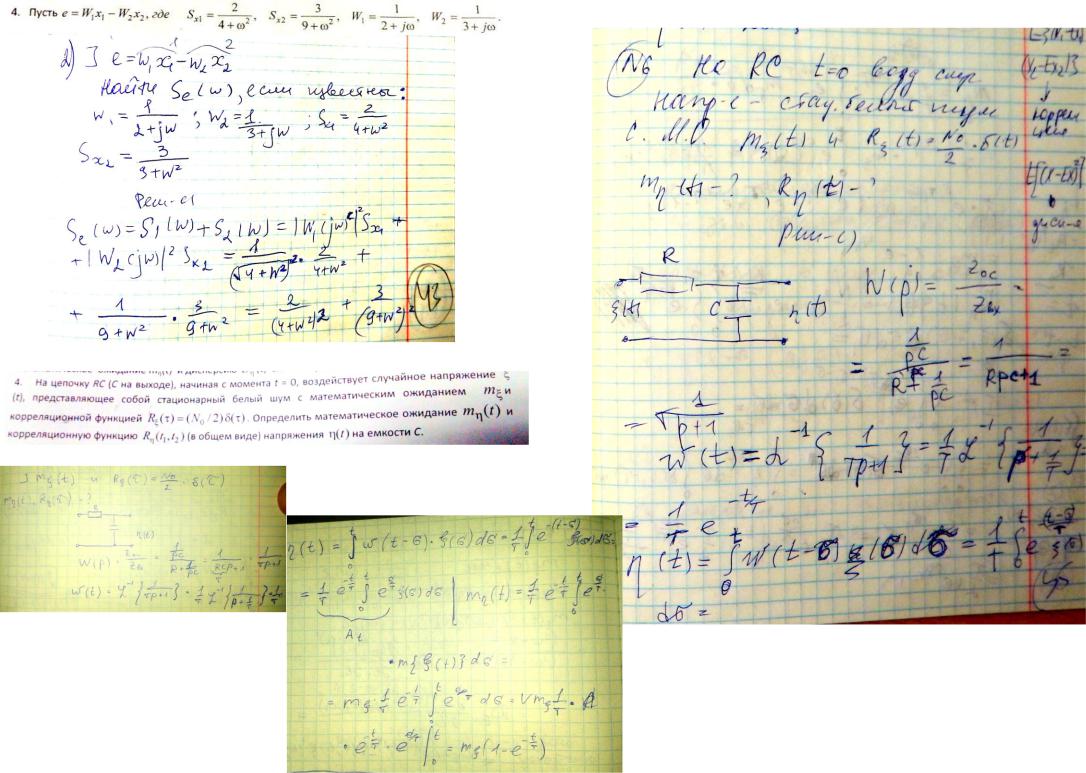 4. Пусть e = W₁x₁ − W₂x₂, где Sₓ₁ = 2/(4+ω²), Sₓ₂ = 3/(9+ω²), W₁ = 1/(2+jω), W₂ = 1/(3+jω).
2) ] e = W₁x₁ − W₂x₂
1 2
Найти Sₑ(w), если известны:
W₁ = 1/(2+jw) ; W₂ = 1/(3+jw) ; Sₓ₁ = 2/(4+w²)
Sₓ₂ = 3/(9+w²)
Реш-е)
Sₑ(w) = S₁(w) + S₂(w) = |W₁(jw)|² Sₓ₁ +
+ |W₂(jw)|² Sₓ₂ = 1/(√(4+w²))² · 2/(4+w²) +
+ 1/(9+w²) · 3/(9+w²) = 2/(4+w²)² + 3/(9+w²)²
43
4. На цепочку RC (C на выходе), начиная с момента t = 0, воздействует случайное напряжение ξ
(t), представляющее собой стационарный белый шум с математическим ожиданием mξ и
корреляционной функцией Rξ(τ) = (N₀/2)δ(τ). Определить математическое ожидание mη(t) и
корреляционную функцию Rη(t₁,t₂) (в общем виде) напряжения η(t) на емкости C.
] mξ(t) и Rξ(τ) = N₀/2 · δ(τ)
mη(t), Rη(t) - ?
R
η(t)
W(p) = Zос/Zвх = (1/pC)/(R+1/pC) = 1/(RCp+1) = 1/(Tp+1)
w(t) = L⁻¹{1/(Tp+1)} = 1/T L⁻¹{1/(p+1/T)} = 1/T
η(t) = ∫₀ᵗ w(t−σ)·ξ(σ)dσ = 1/T ∫₀ᵗ e^(−(t−σ)/T) ξ(σ)dσ =
= 1/T e^(−t/T) ∫₀ᵗ e^(σ/T) ξ(σ)dσ | mη(t) = 1/T e^(−t/T) ∫₀ᵗ e^(σ/T) ·
At
· m{ξ(t)}dσ =
= mξ · 1/T e^(−t/T) ∫₀ᵗ e^(σ/T) dσ = mξ 1/T ·
· e^(−t/T) · e^(σ/T) |₀ᵗ = mξ(1−e^(−t/T))
N6 На RC t=0 возд случ.
напр-е – стац. белый шум
с М.О. mξ(t) и Rξ(t) = N₀/2 · δ(t)
mη(t) - ?, Rη(t) - ?
Реш-е)
R
ξ(t) C η(t) W(p) = Zос/Zвх =
= (1/pC)/(R+1/pC) = 1/(RpC+1) =
= 1/(Tp+1)
w(t) = L⁻¹{1/(Tp+1)} = 1/T L⁻¹{1/(p+1/T)} =
= 1/T e^(−t/T)
η(t) = ∫₀ᵗ w(t−σ) ξ(σ)dσ = 1/T ∫₀ᵗ e^(−(t−σ)/T) ξ(σ)
dσ =